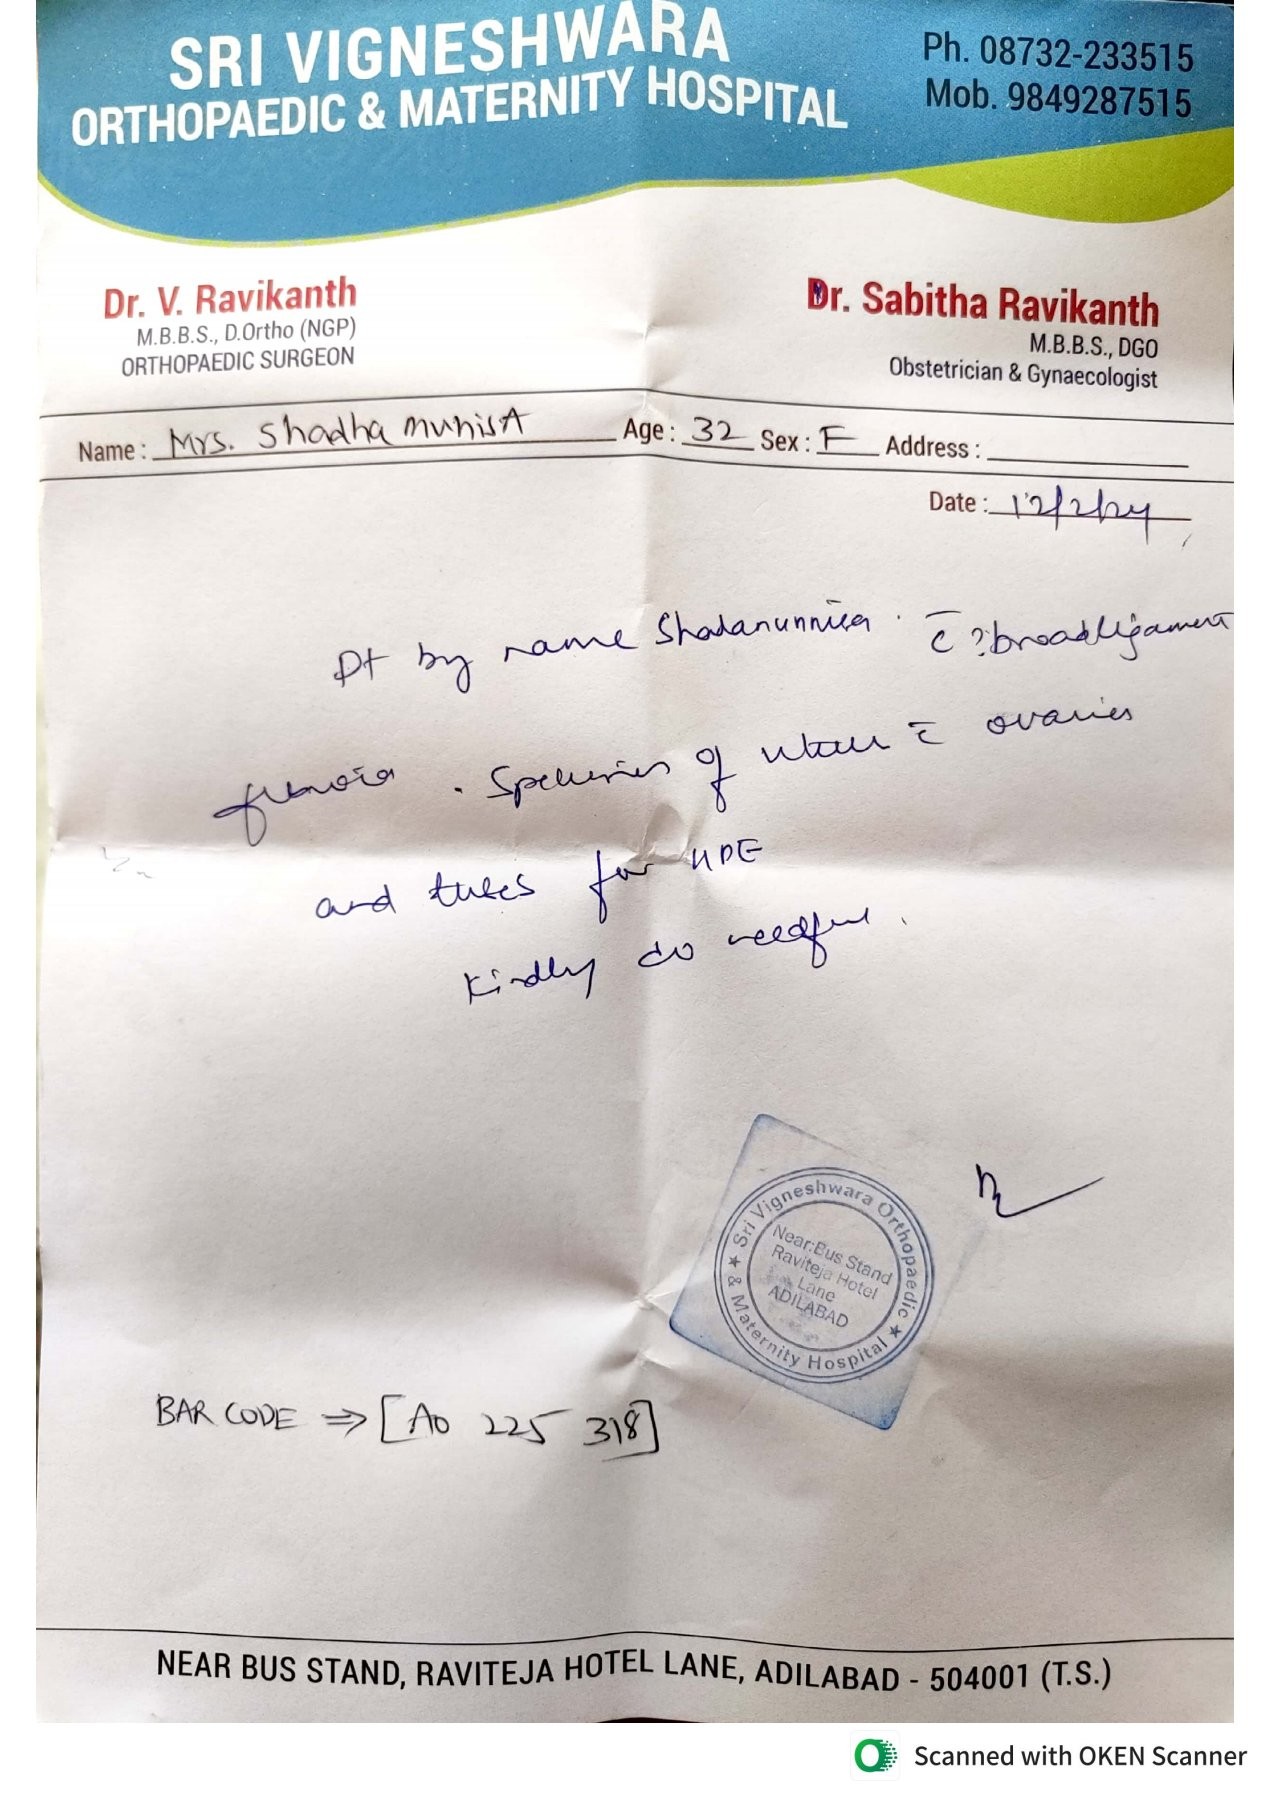 SRI VIGNESHWARA
ORTHOPAEDIC & MATERNITY HOSPITAL
Ph. 08732-233515
Mob. 9849287515
Dr. V. Ravikanth
M.B.B.S., D.Ortho (NGP)
ORTHOPAEDIC SURGEON
Dr. Sabitha Ravikanth
M.B.B.S., DGO
Obstetrician & Gynaecologist
Name : Mrs. Shadha munisA Age : 32 Sex : F Address :
Date : 12/2/24
Pt by name Shadanunnisa c̄ ? broad ligament
fibroid . Specimen of uterus c̄ ovaries
and tubes for HPE
Kindly do needful .
Sri Vigneshwara Orthopaedic & Maternity Hospital
Near:Bus Stand
Raviteja Hotel
Lane
ADILABAD
BAR CODE ⇒ [A0 225 318]
NEAR BUS STAND, RAVITEJA HOTEL LANE, ADILABAD - 504001 (T.S.)
Scanned with OKEN Scanner